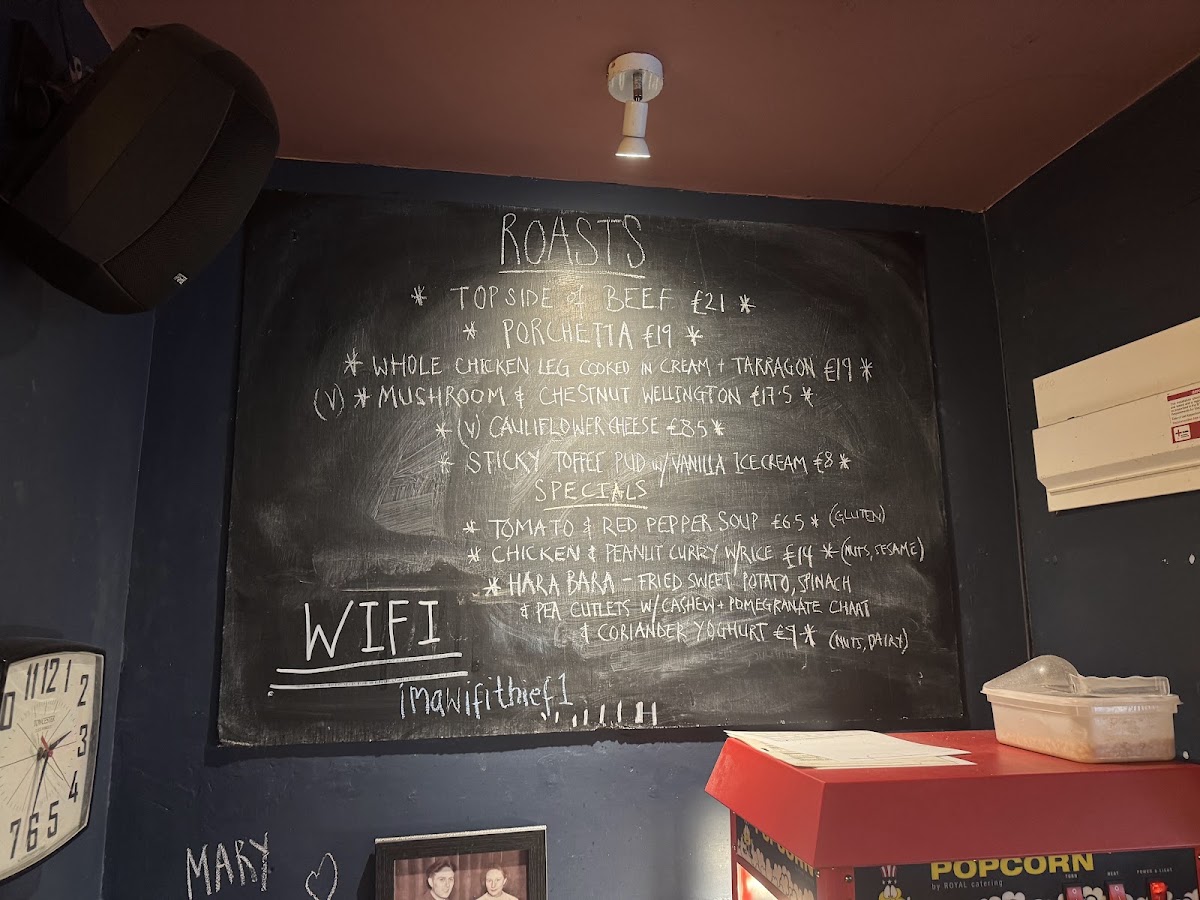 ROASTS
* TOPSIDE of BEEF £21 *
* PORCHETTA £19 *
* WHOLE CHICKEN LEG COOKED IN CREAM + TARRAGON £19 *
(V) * MUSHROOM & CHESTNUT WELLINGTON £17.5 *
* (V) CAULIFLOWER CHEESE £8.5 *
* STICKY TOFFEE PUD w/ VANILLA ICE CREAM £8 *
SPECIALS
* TOMATO & RED PEPPER SOUP £6.5 * (GLUTEN)
* CHICKEN & PEANUT CURRY W/RICE £14 * (NUTS, SESAME)
* HARA BARA - FRIED SWEET POTATO, SPINACH
& PEA CUTLETS W/ CASHEW + POMEGRANATE CHAAT
& CORIANDER YOGHURT £9 * (NUTS, DAIRY)
WIFI
imawifithief1
11 12 1
2
3
4
5
6
7
TOWCESTER
MARY
POPCORN
POPCORN
by ROYAL catering
TURN HEAT POWER & LIGHT